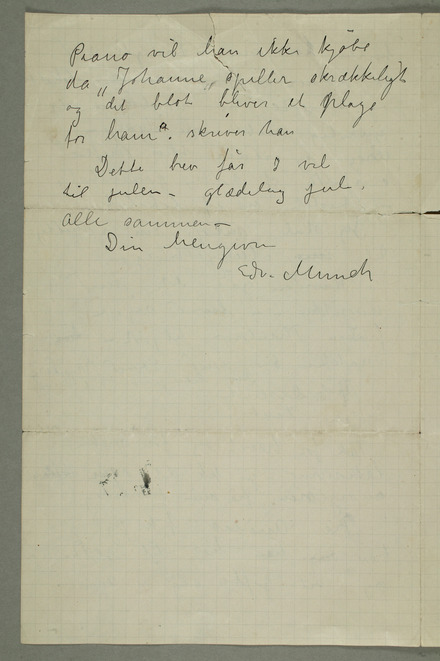 Piano vil han ikke kjøbe
da „Johanne„ spiller skrækkeligt
og „det blot bliver et plage
for ham“. skriver han
Dette brev får I vel
til julen – glædelig jul.
alle sammen –
Din hengivne
Edv. Munch